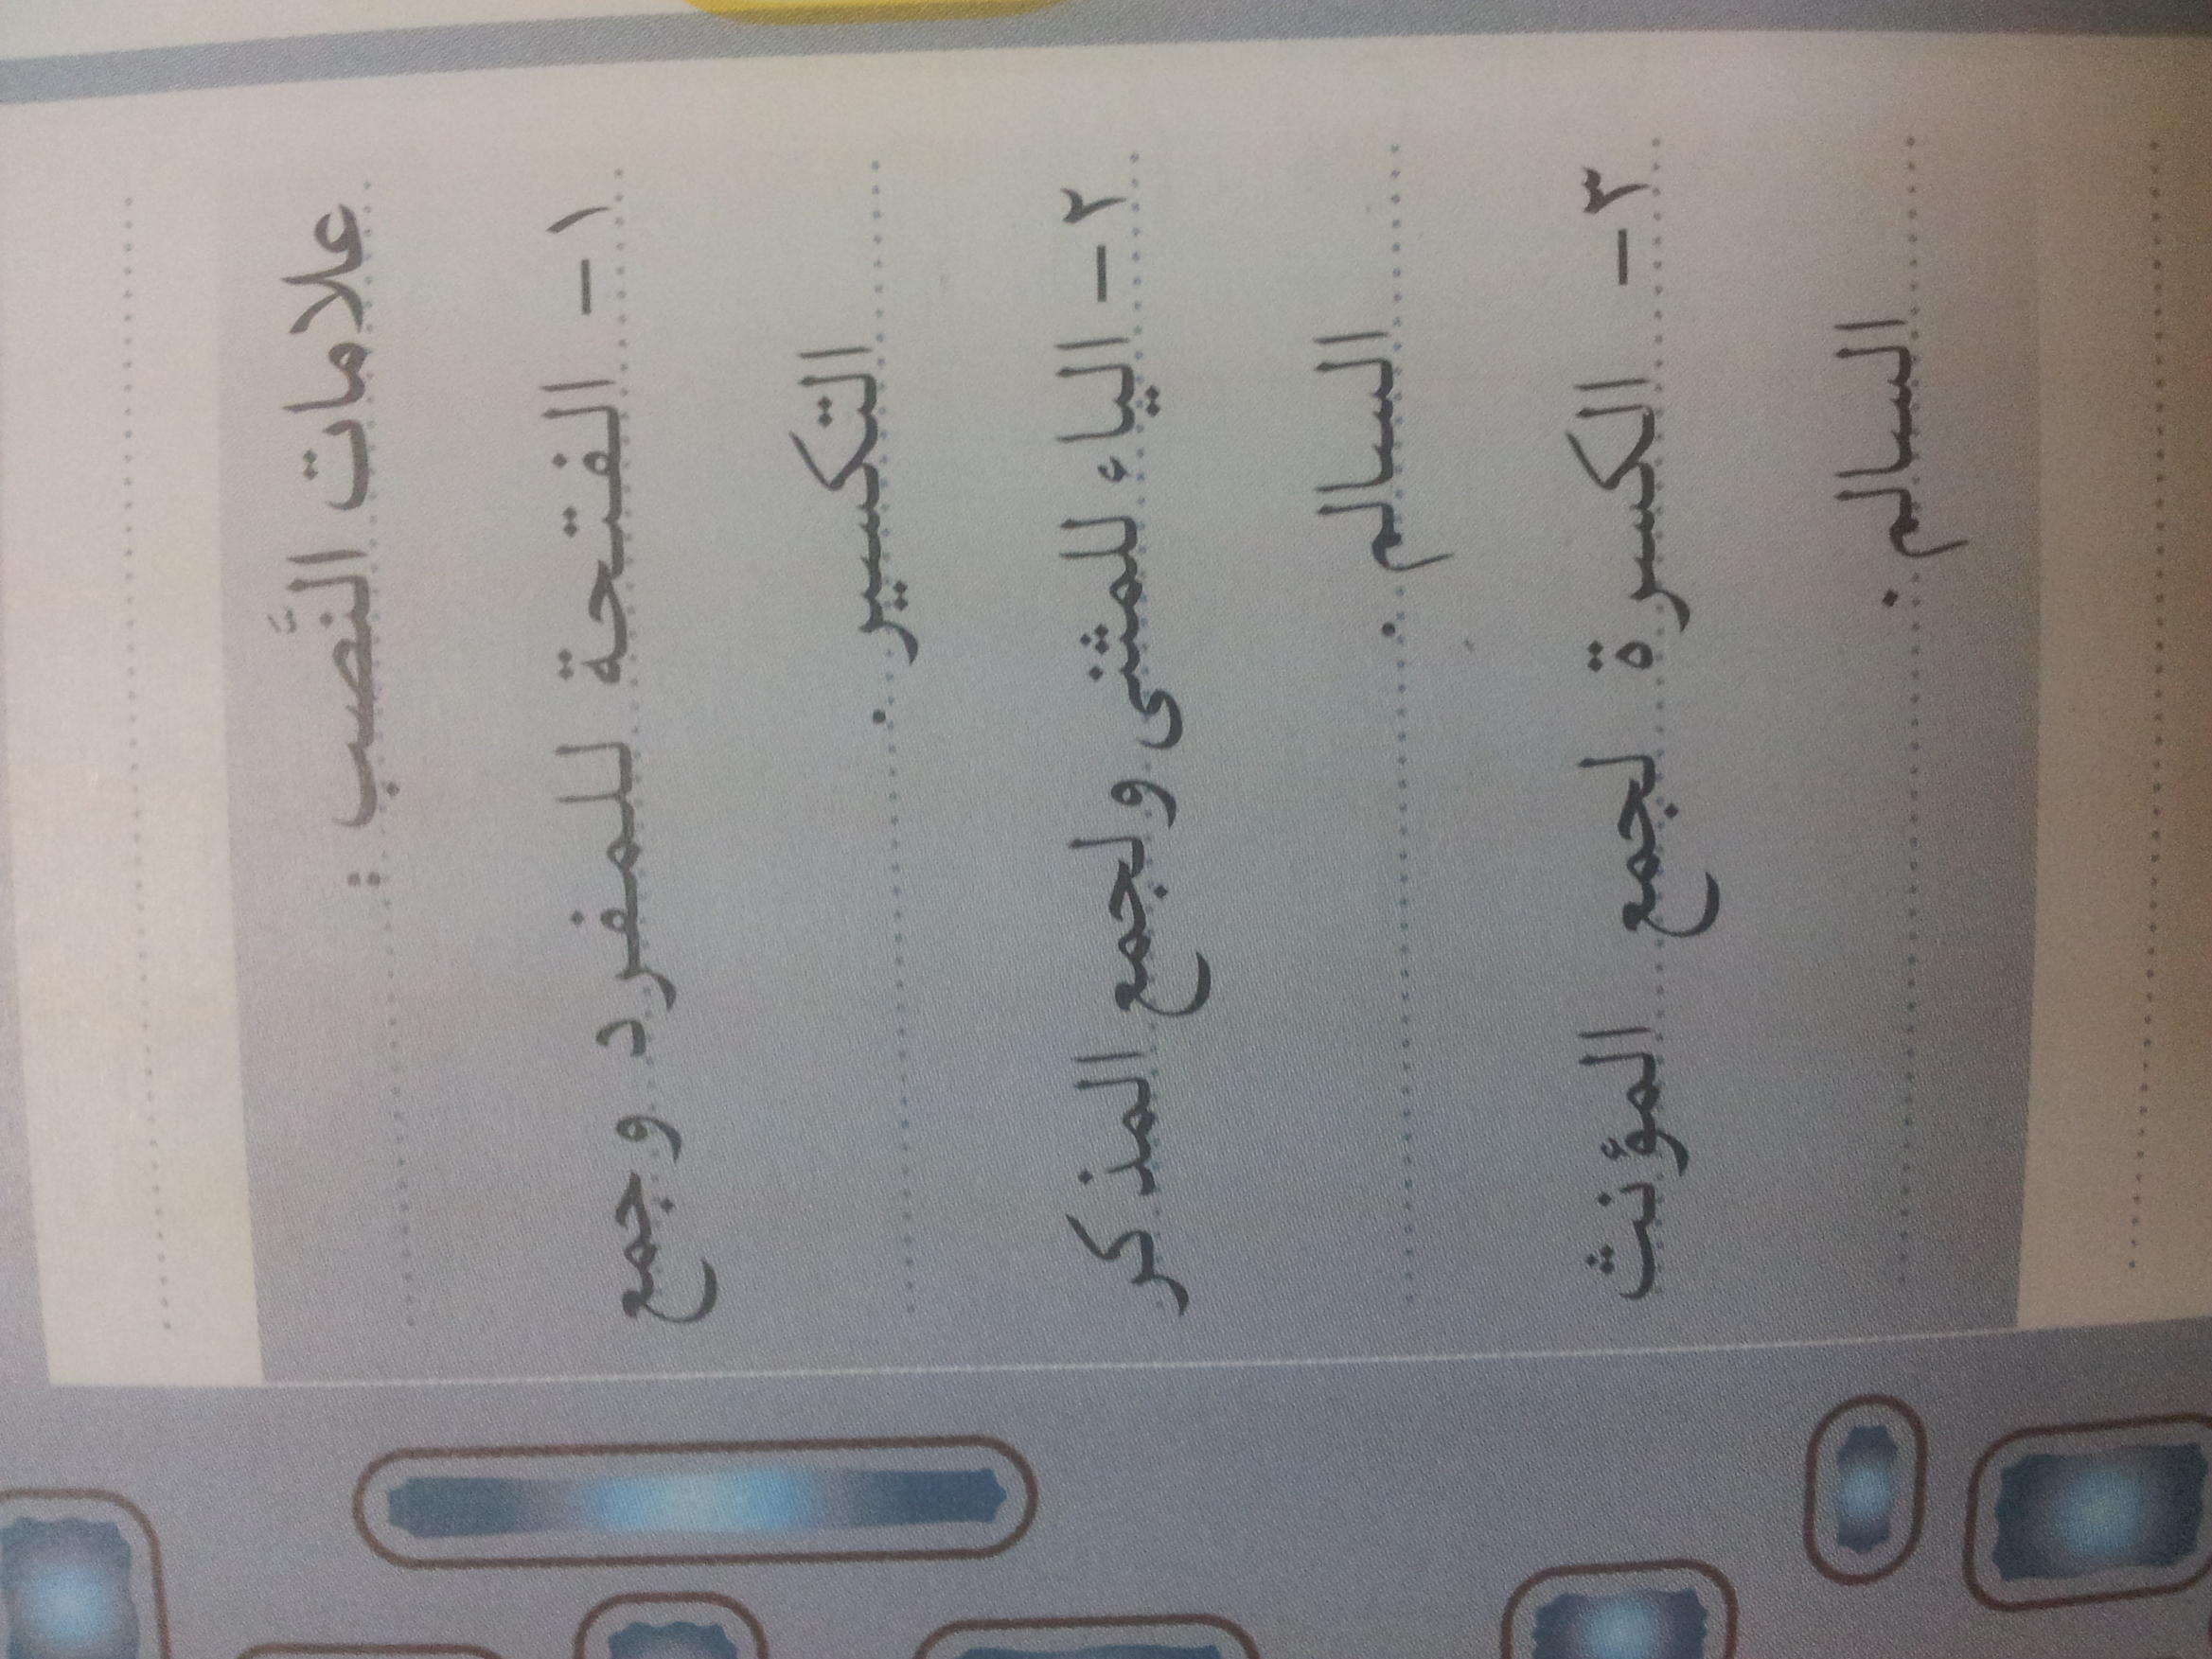 علامات النَّصب :
١ - الفتحة للمفرد وجمع
التكسير .
٢ - الياء للمثنى ولجمع المذكر
السالم .
٣ - الكسرة لجمع المؤنث
السالم .